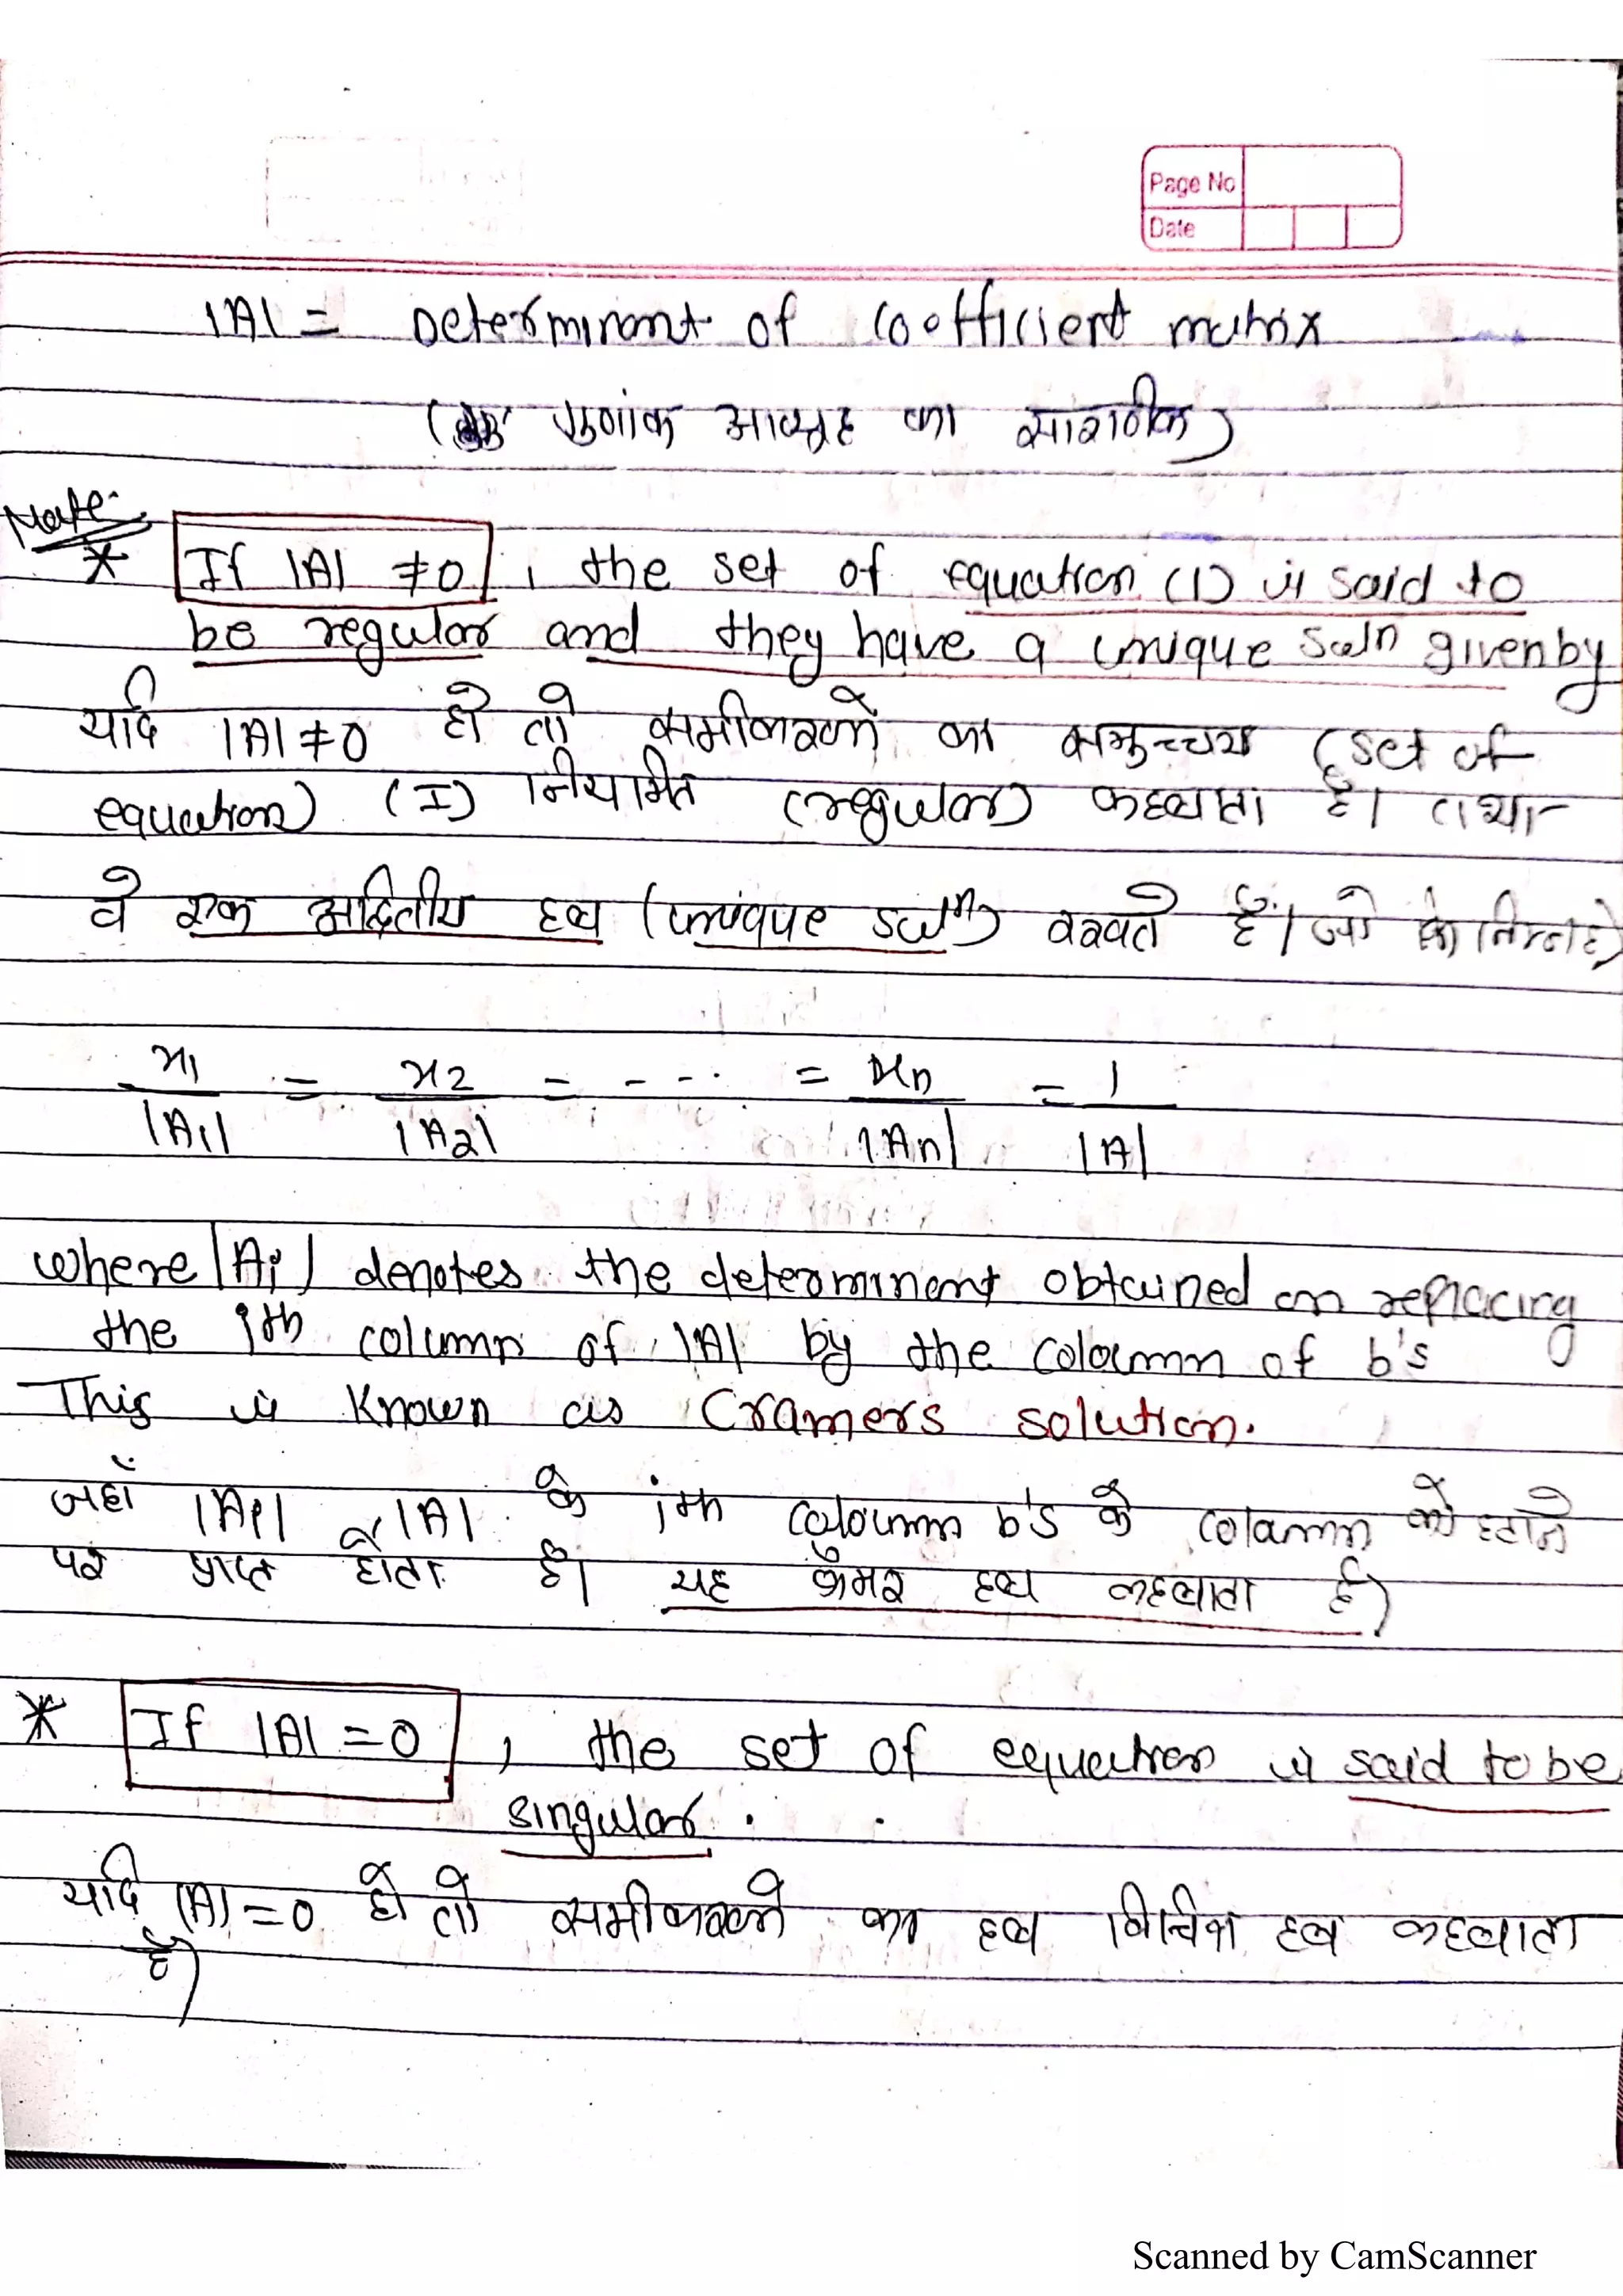 Page No
Date
|A| = Determinant of Coefficient matrix
( गुणांक आव्यूह का सारणीक)
Note:-
* If |A| ≠ 0, the set of equation (1) is said to
be regular and they have a unique soln given by
यदि |A| ≠ 0 हो तो समीकरणो का समुच्चय (set of
equation) (I) नियामित (regular) कहलाता है। तथा
वे एक अद्वितीय हल (unique soln) रखते हैं। जो कि निम्न है)
x1/|A1| = x2/|A2| = - - - . = xn/|An| = 1/|A|
where |Ai| denotes the determinant obtained on replacing
the ith column of |A| by the coloumn of b's
This is known as Cramers solution.
जहाँ |Ai|, |A| के ith coloumn b's के coloumn को हटाने
पर प्राप्त होता है। यह क्रैमर हल कहलाता है)
* If |A| = 0, the set of equation is said to be
singular.
यदि |A| = 0 हो तो समीकरणो का हल विचित्र हल कहलाता
है)
Scanned by CamScanner